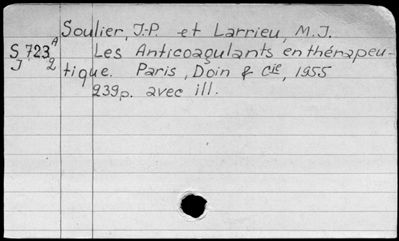 Soulier, J-P. et Larrieu, M.J.
S 723 A Les Anticoagulants en thérapeu-
J 2 tique. Paris, Doin & Cie, 1955
239p. avec ill.